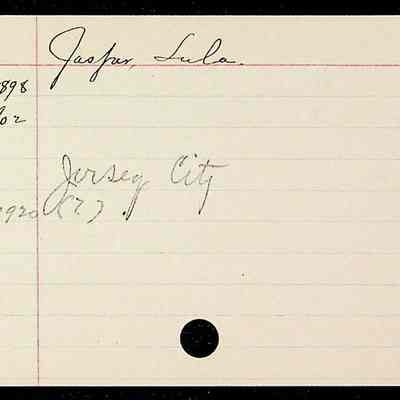 Jaspar, Lula.
898
02
Jersey City
1920 (?).